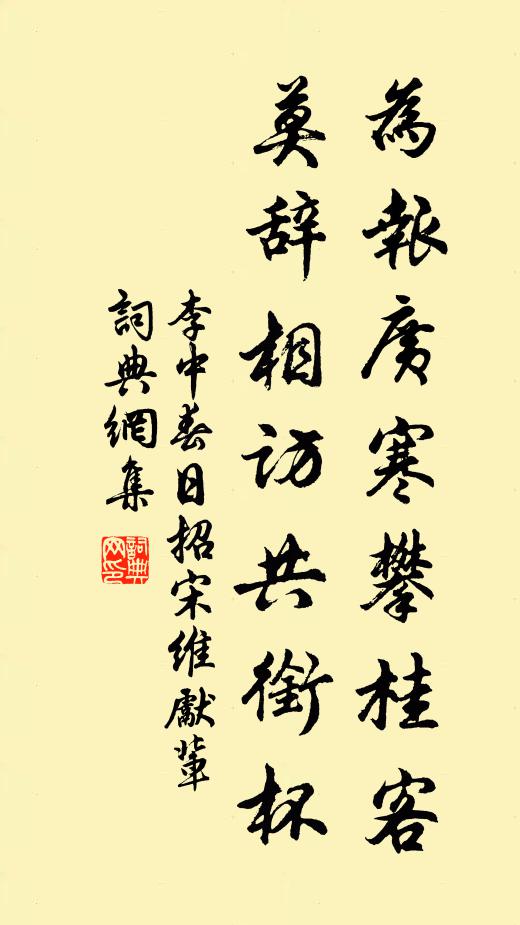 為報廣寒攀桂客
莫辞相訪共銜杯
李中春日招宋維獻輩
詞典網集
詞典网印